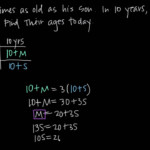 imes as old as his son. In 10 years,
Find their ages today.
10 yrs
10+M
10+S
10+M = 3(10+S)
10+M = 30+3S
M = 20+3S
13S = 20+3S
10S = 2